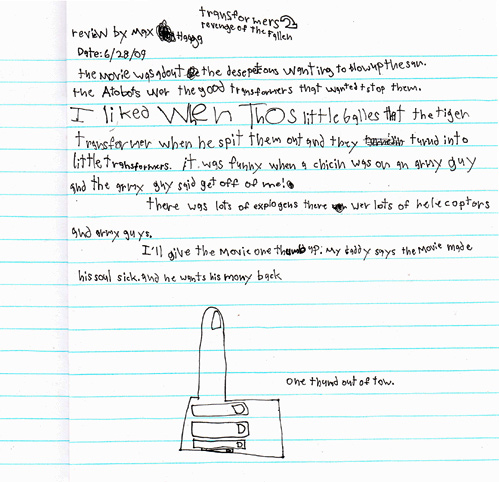 transformers 2
revenge of the Fallen
review by Max
Date: 6/28/09
the Movie was about the deseptecons wanting to blow up the sun.
the Atobots wer the good transformers that wanted to stop them.
I liked WHEN THOS little balles that the tiger
transformer when he spit them out and they turnd into
little transformers. it was funny when a chicin was on an army guy
and the army guy said get off of me!
there was lots of explogens there wer lots of helecoptors
and army guys.
I'll give the Movie one thumb up. My daddy says the Movie made
his soul sick. and he wants his mony back
one thumb out of tow.